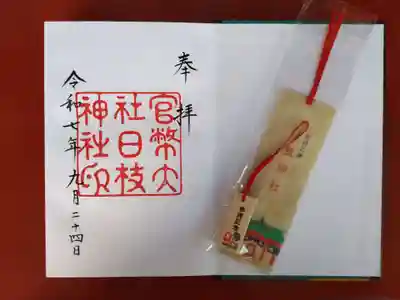 奉拝
官幣大
社日枝
神社印
令和七年 九月二十四日